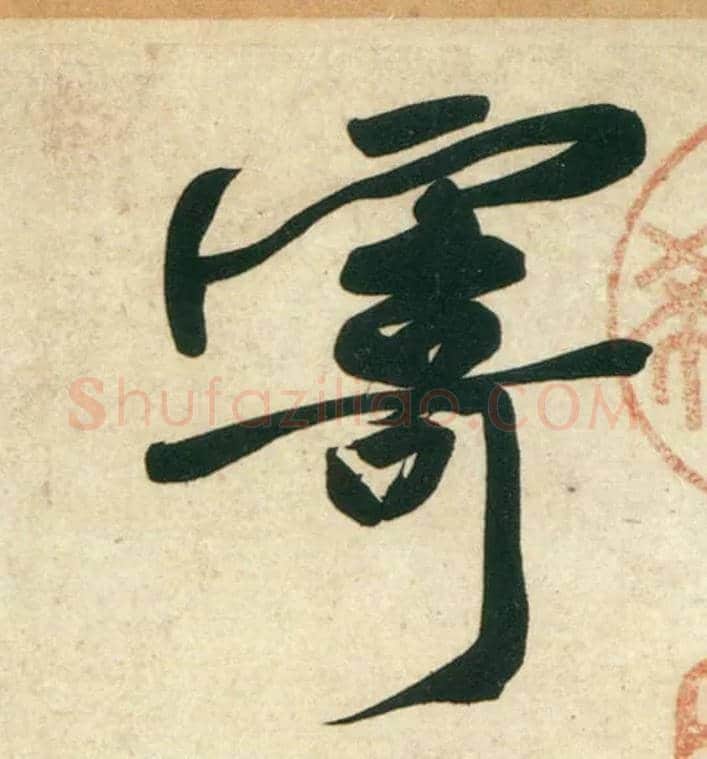 寄
Shufaziliao.COM